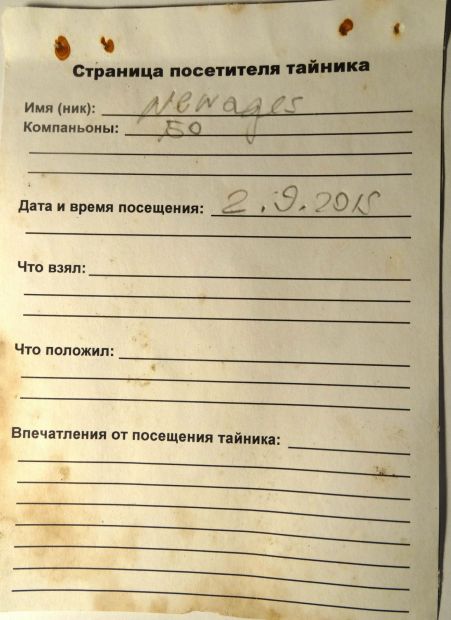 Страница посетителя тайника
Имя (ник): Newages
Компаньоны: БО
Дата и время посещения: 2.9.2015
Что взял:
Что положил:
Впечатления от посещения тайника: